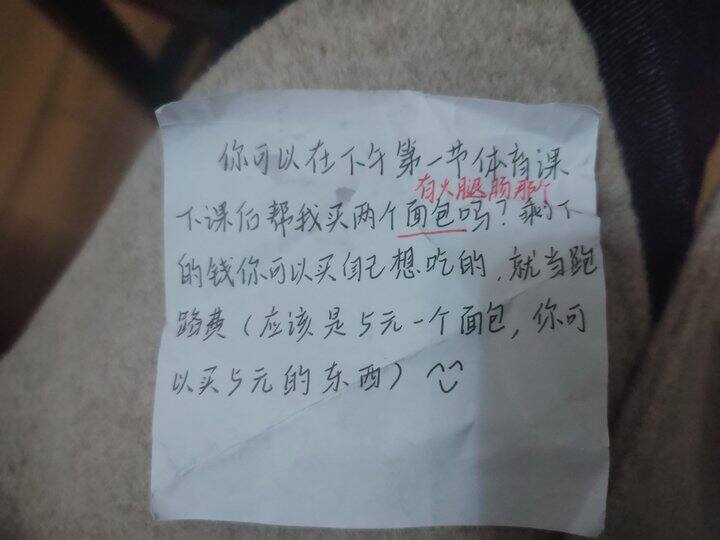 你可以在下午第一节体育课
有火腿肠那个
下课后帮我买两个面包吗？剩下
的钱你可以买自己想吃的，就当跑
路费（应该是5元一个面包，你可
以买5元的东西）